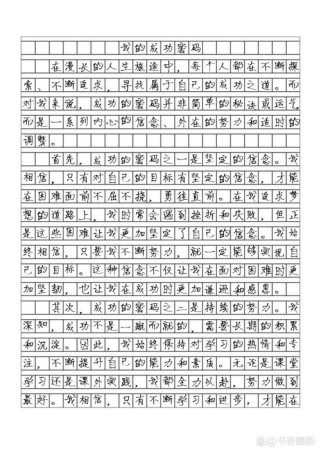 我的成功密码
在漫长的人生旅途中，每个人都在不断探
索、不断追求，寻找属于自己的成功之道。而
对我来说，成功的密码并非简单的秘诀或运气，
而是一系列内心的信念、外在的努力和适时的
调整。
首先，成功的密码之一是坚定的信念。我
相信，只有对自己的目标有坚定的信念，才能
在困难面前不屈不挠，勇往直前。在我追求梦
想的道路上，我时常会遇到挫折和失败，但正
是这些困难让我更加坚定了自己的信念。我始
终相信，只要我不断努力，就一定能够实现自
己的目标。这种信念不仅让我在面对困难时更
加坚韧，也让我在成功时更加谦逊和感恩。
其次，成功的密码之二是持续的努力。我
深知，成功不是一蹴而就的，需要长期的积累
和沉淀。因此，我始终保持对学习的热情和专
注，不断提升自己的能力和素质。无论是课堂
学习还是课外实践，我都全力以赴，努力做到
最好。我相信，只有不断学习和进步，才能在